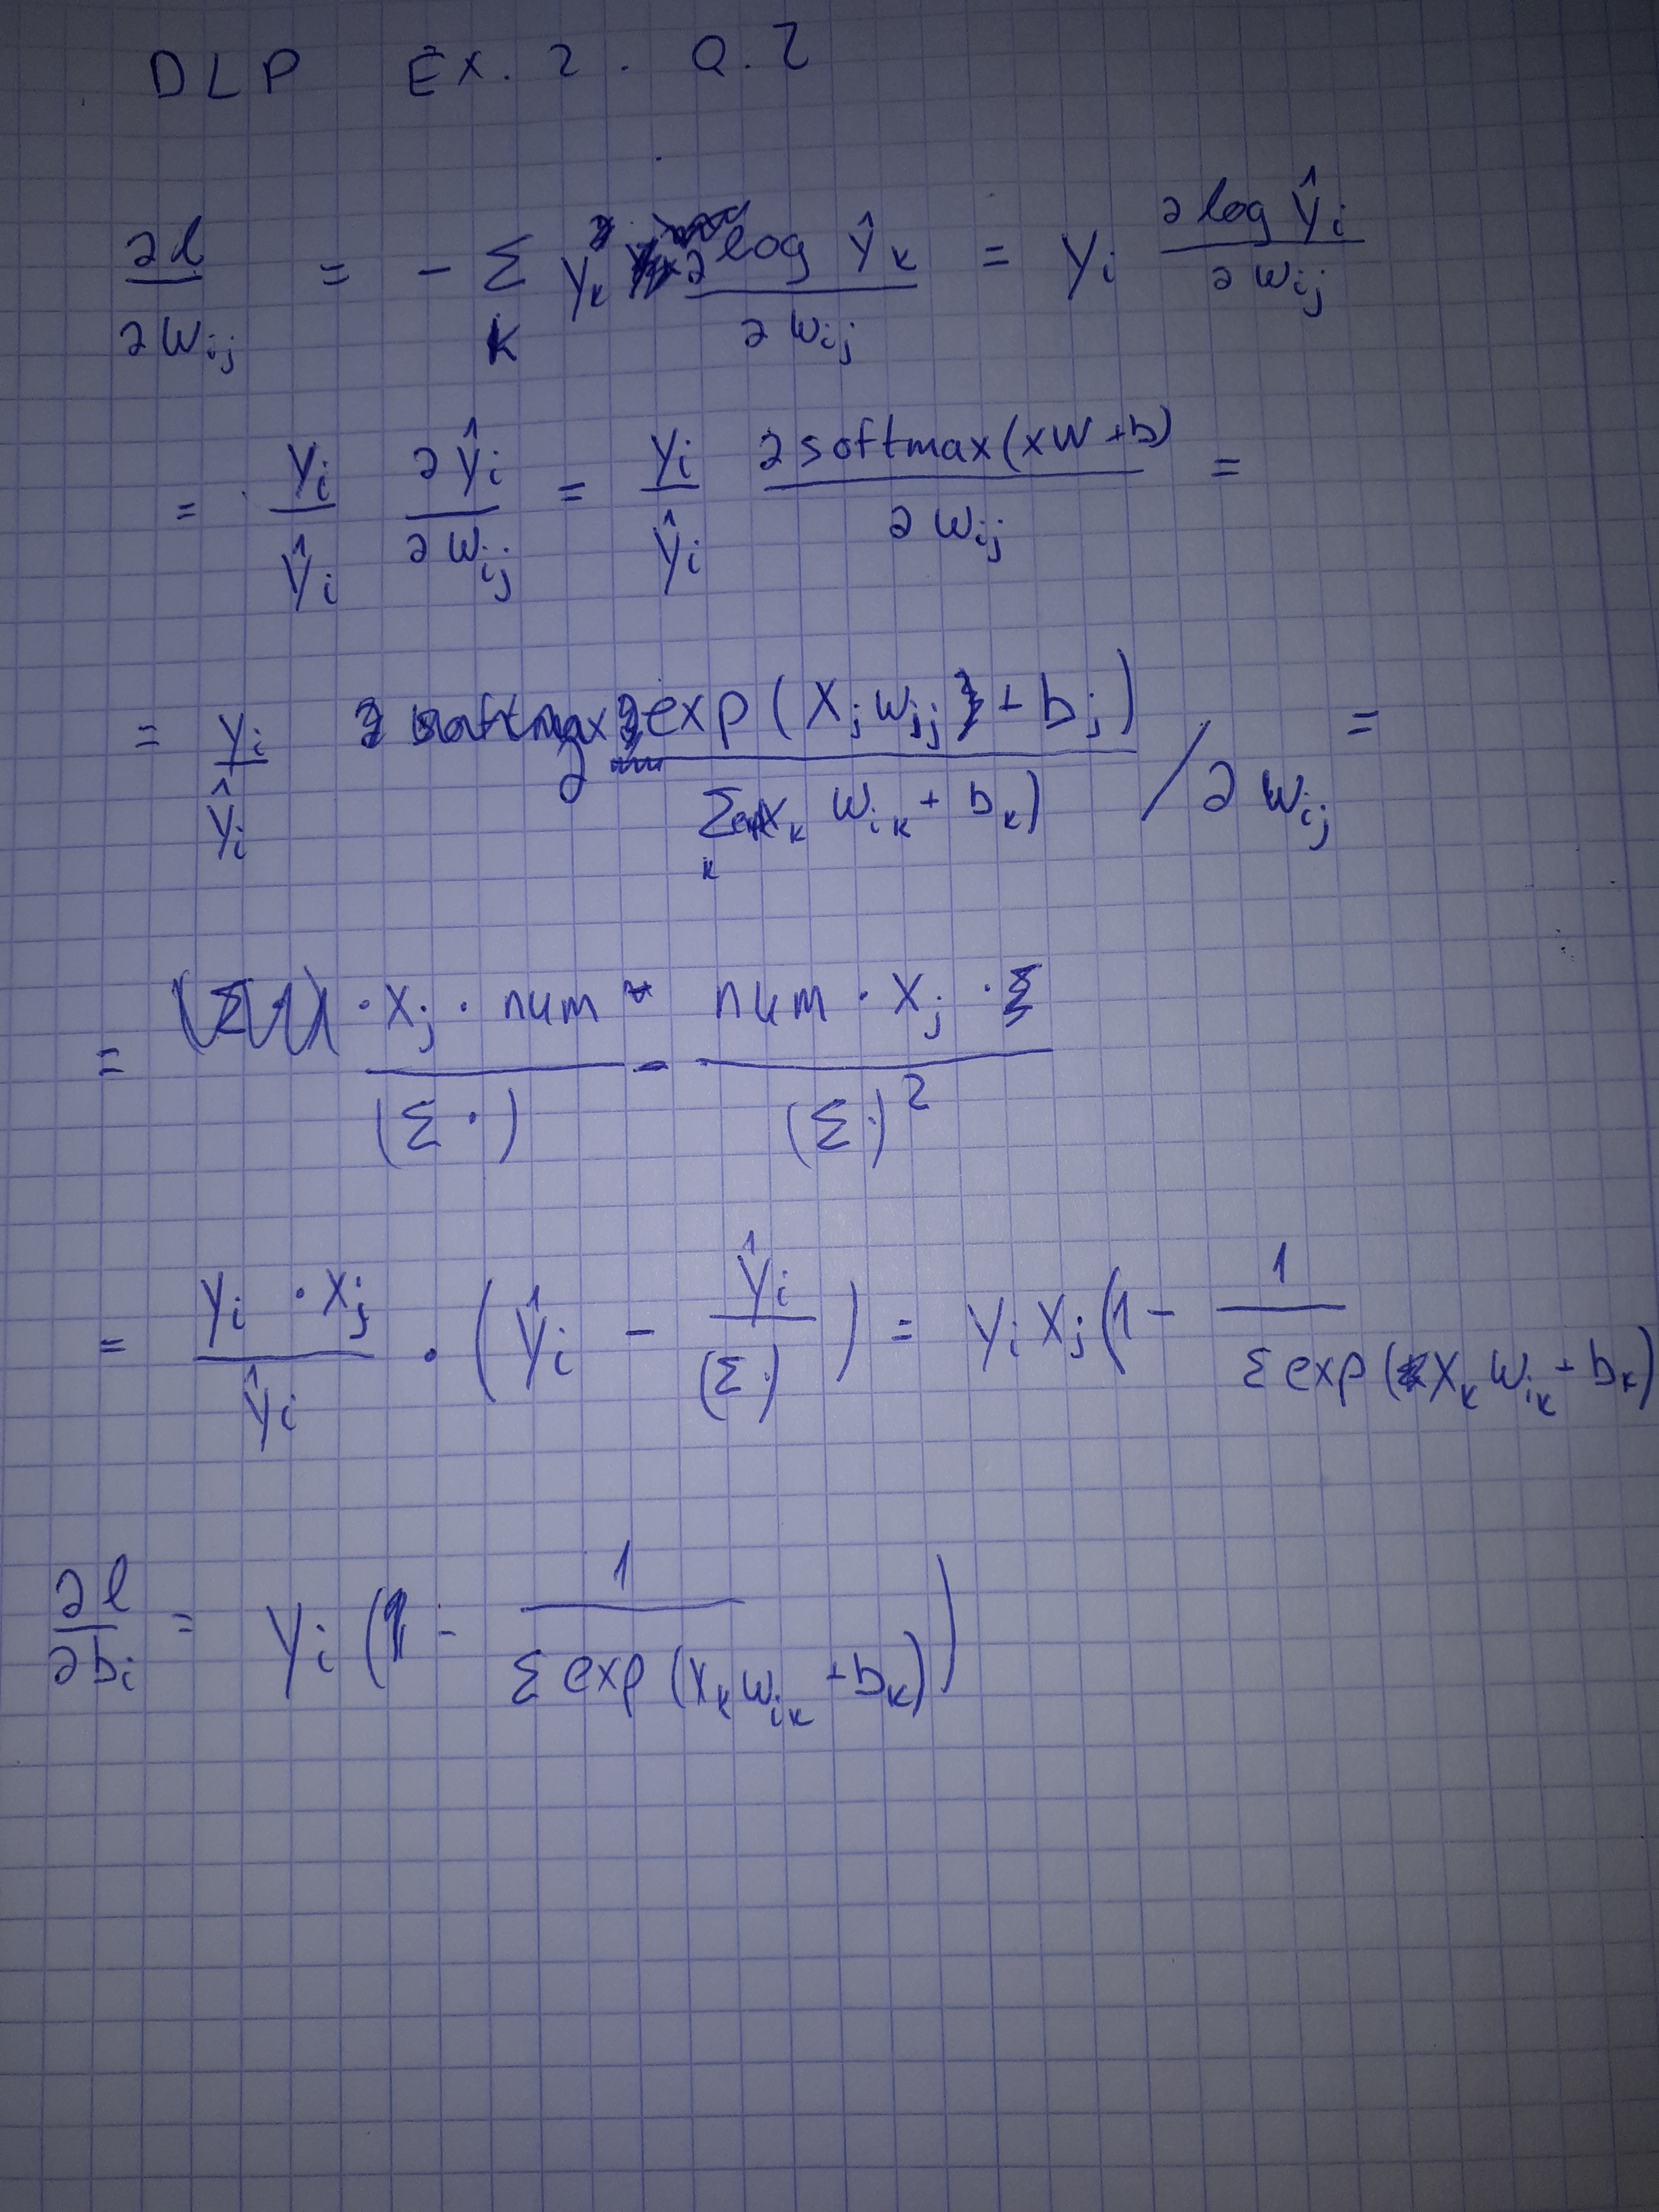 DLP EX. 2. Q.2
∂l/∂w_ij = - Σ_k y_k ∂log ŷ_k/∂w_ij = y_i ∂log ŷ_i/∂w_ij
= y_i/ŷ_i ∂ŷ_i/∂w_ij = y_i/ŷ_i ∂softmax(xW+b)/∂w_ij =
= y_i/ŷ_i ∂ exp(x_j w_ij + b_j)/Σ_k x_k w_ik + b_k) / ∂w_ij =
= · x_j · num/(Σ·) - num · x_j · Σ/(Σ·)²
= y_i · x_j/ŷ_i · (ŷ_i - ŷ_i/(Σ·)) = y_i x_j (1 - 1/Σ exp(x_k w_ik + b_k)
∂l/∂b_i = y_i (1 - 1/Σ exp(x_k w_ik + b_k))